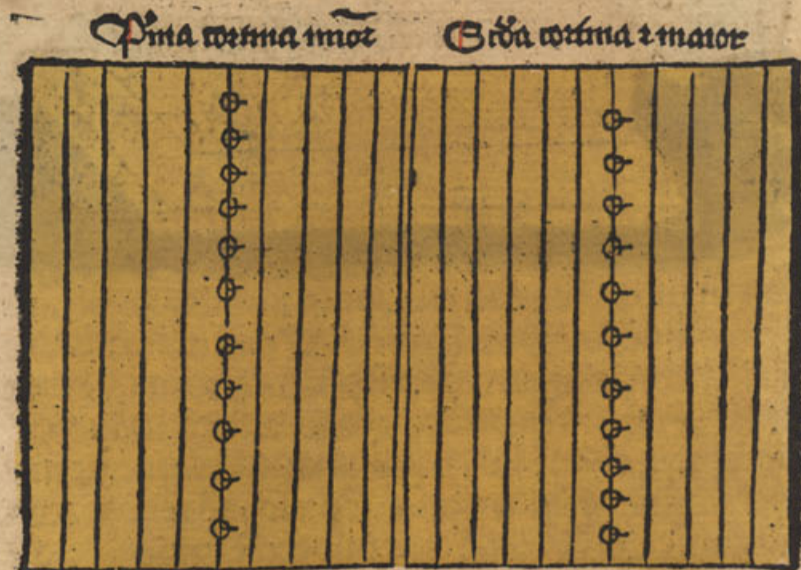 Pͥma cortina mīor
Scd̄a cortina ⁊ maior